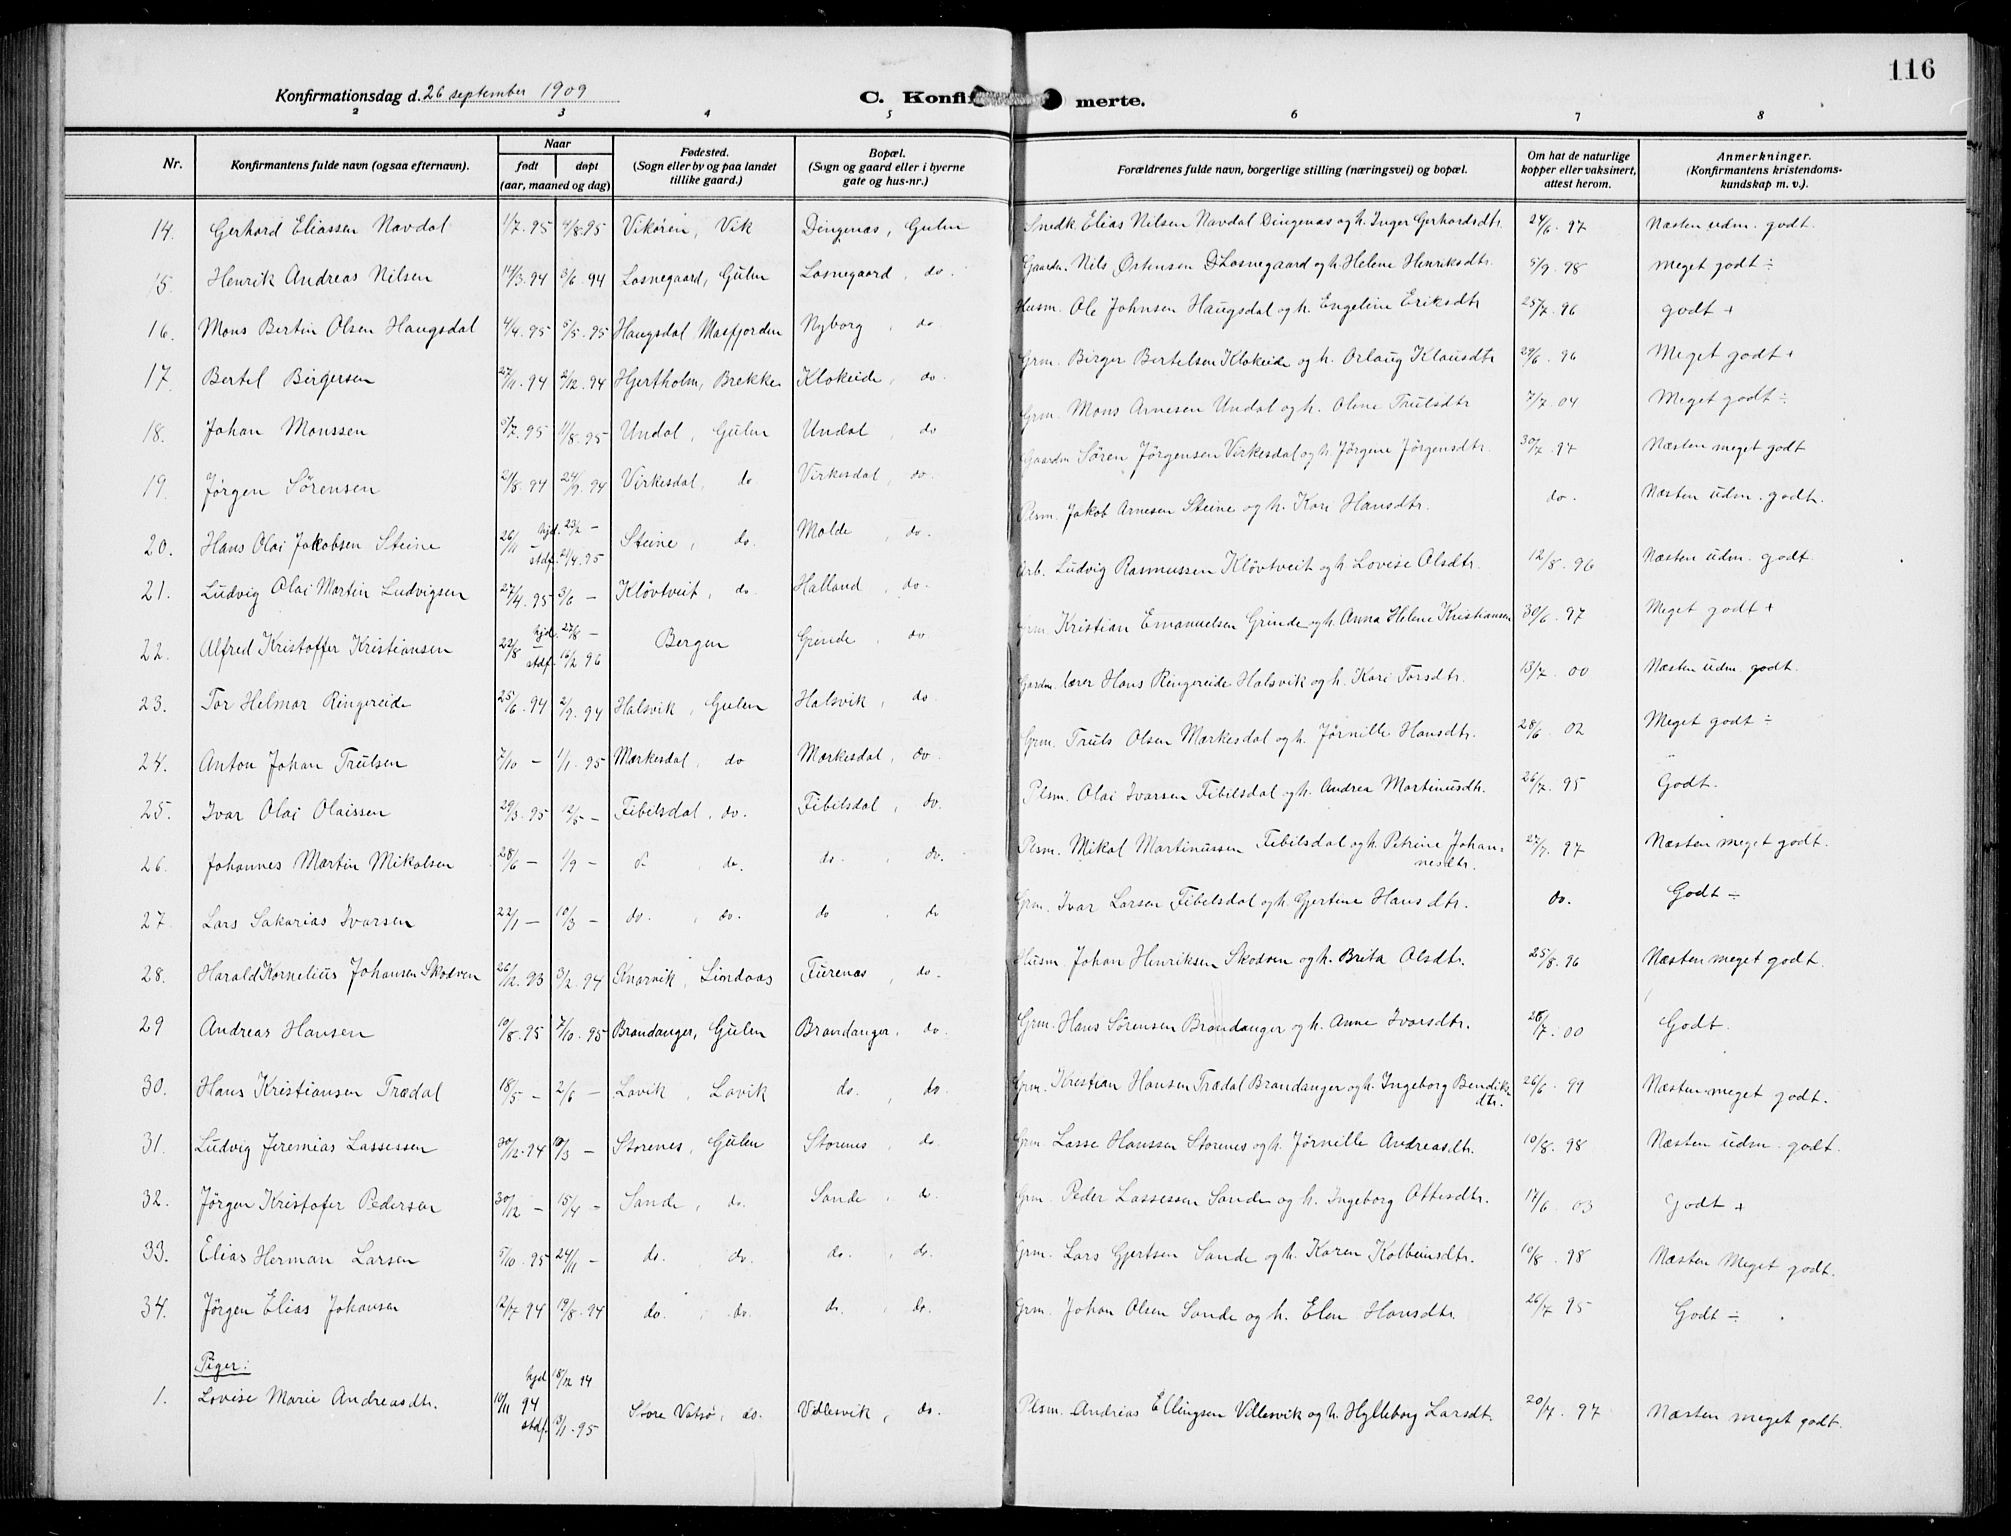 116
Konfirmationsdag d. 26 september 1909
C. Konfirmerte.
2 3 4 5 6 7 8
Nr. Konfirmantens fulde navn (ogsaa efternavn). Naar født døpt (aar, maaned og dag) Fødested. (Sogn eller by og paa landet tillike gaard.) Bopæl. (Sogn og gaard eller i byerne gate og hus-nr.) Forældrenes fulde navn, borgerlige stilling (næringsvei) og bopæl. Om hat de naturlige kopper eller vaksinert, attest herom. Anmerkninger. (Konfirmantens kristendomskundskap m. v.).
14. Gerhard Eliassen Navdal 1/7. 95 4/8. 95 Vikøren, Vik Dingenæs, Gulen Snedk. Elias Nilsen Navdal Dingenæs og h. Inger Gerhardsdtr. 24/6. 97 Næsten udm. godt.
15. Henrik Andreas Nilsen 14/3. 94 3/6. 94 Losnegaard, Gulen Losnegaard, do. Gaardm. Nils Østensen Losnegaard og h. Helene Henriksdtr. 5/9. 98 Meget godt ÷
16. Mons Bertin Olsen Haugsdal 4/4. 95 5/5. 95 Haugsdal Masfjorden Nyborg, do. Husm. Ole Johnsen Haugsdal og h. Engeline Eriksdtr 25/7. 96 godt +
17. Bertel Birgersen 27/11. 94 2/12. 94 Hjertholm, Brekke Klokeide, do. Grm. Birger Bertelsen Klokeide og h. Orlaug Klausdtr 29/6. 96 Meget godt +
18. Johan Monssen 5/7. 95 11/8. 95 Undal, Gulen Undal, do Grm. Mons Arnesen Undal og h. Oline Trulsdtr 7/7. 04 Meget godt ÷
19. Jørgen Sørensen 21/8. 94 24/9. 94 Virkesdal, do. Virkesdal, do. Gaardm Søren Jørgensen Virkesdal og h. Jørgine Jørgensdtr. 30/7. 97 Næsten meget godt
20. Hans Olai Jakobsen Steine 26/11 - hjd. 23/12 - stdf. 21/4. 95 Steine, do. Molde, do. Plsm. Jakob Arnesen Steine og h. Kari Hansdtr. do. Næsten udm. godt.
21. Ludvig Olai Martin Ludvigsen 27/4. 95 3/6 - Kløvtveit, do. Halland, do. Arb. Ludvig Rasmussen Kløvtveit og h. Lovise Olsdtr. 12/8. 96 Næsten udm. godt
22. Alfred Kristoffer Kristiansen 22/8 - hjd. 27/8 - stdf. 16/2 96 Bergen Grinde, do Grm. Kristian Emanuelsen Grinde og h. Anna Helene Kristiansen 30/6. 97 Meget godt +
23. Tor Helmar Ringereide 25/6. 94 2/9. 94 Halsvik, Gulen Halsvik, do. Gardm. lærer Hans Ringereide Halsvik og h. Kari Torsdtr. 18/7. 00 Næsten udm. godt.
24. Anton Johan Trulsen 7/10 - 1/1. 95 Mærkesdal, do Mærkesdal, do. Grm. Truls Olsen Mærkesdal og h. Jørnille Hansdtr. 28/6. 02 Meget godt ÷
25. Ivar Olai Olaissen 29/3. 95 12/5 - Fibilsdal, do. Fibilsdal, do. Plsm. Olai Ivarsen Fibilsdal og h. Andrea Martinusdtr. 26/7. 95 Godt.
26. Johannes Martin Mikalsen 28/6 - 1/9 - do. do. do. Plsm. Mikal Martinussen Fibilsdal og h. Petrine Johannesdtr. 27/7. 97 Næsten meget godt.
27. Lars Sakarias Ivarsen 22/1 - 10/3 - do. do. do do Grm. Ivar Larsen Fibilsdal og h. Gjertine Hansdtr. do. Godt ÷
28. Harald Kornelius Johansen Skodven 26/12. 93 3/2. 94 Knarvik, Lindaas Furenæs, do. Husm. Johan Henriksen Skodven og h. Brita Olsdtr. 25/8. 96 Næsten meget godt.
29 Andreas Hansen 19/8. 95 7/10. 95 Brandanger, Gulen Brandanger, do. Grm. Hans Sørensen Brandanger og h. Anne Ivarsdtr. 26/7. 00 Godt.
30. Hans Kristiansen Trædal 18/5 - 2/6 - Lavik, Lavik do., do. Grm. Kristian Hansen Trædal Brandanger og h. Ingeborg Bendiksdtr. 26/6. 99 Næsten meget godt.
31. Ludvig Jeremias Lassessen 30/12. 94 10/3 - Storenes, Gulen Storenes, do. Grm. Lasse Hanssen Storenes og h. Jørnille Andreasdtr. 10/8. 98 Næsten udm. godt.
32. Jørgen Kristofer Pedersen 30/12 - 15/4 - Sande, do. Sande, do. Grm. Peder Lassessen Sande og h. Ingeborg Ottesdtr. 17/6. 03 Godt +
33. Elias Herman Larsen 5/10. 95 24/11 - do. do. do., do. Grm. Lars Gjertsen Sande og h. Karen Kolbeinsdtr. 10/8. 98 Næsten Meget godt.
34. Jørgen Elias Johansen 12/7 94 19/8. 94 do. do. do. do. Grm. Johan Olsen Sande og h. Elen Hansdtr. 26/7 95 Godt ÷
Piger:
1. Lovise Marie Andreasdtr. 16/11 94 hjd 18/12 94 stdf. 13/1. 95 Store Vatsø, do. Villesvik, do. Plsm. Andreas Ellingsen Villesvik og h. Hylleborg Larsdt. 20/7. 97 Næsten meget godt.